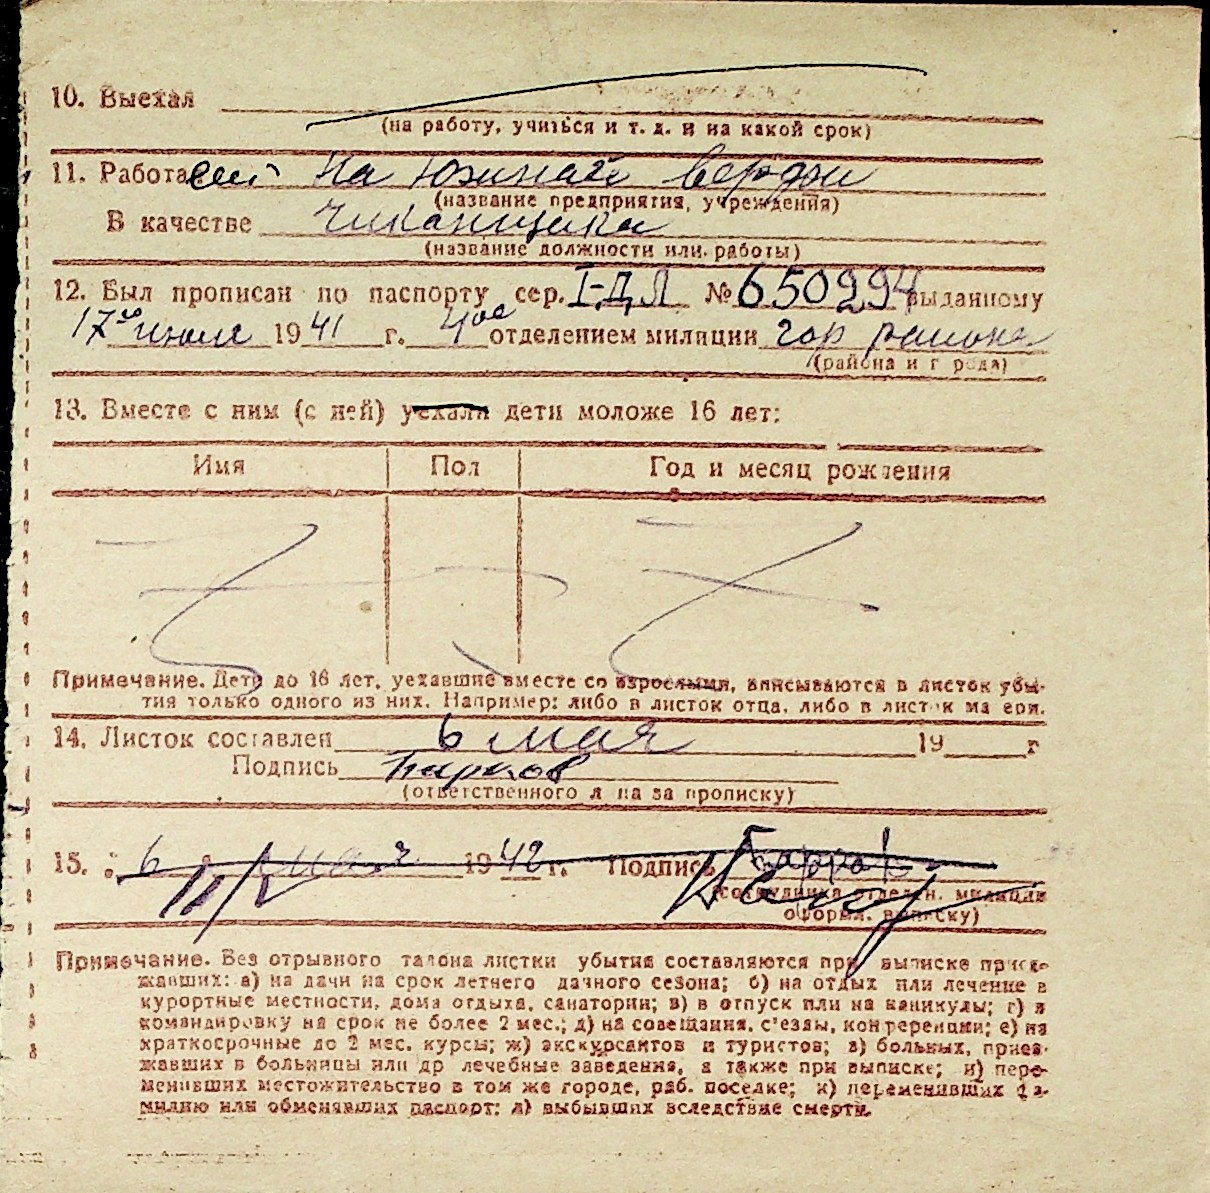 10. Выехал
(на работу, учиться и т. д. и на какой срок)
11. Работа на Южной верфи
(название предприятия, учреждения)
В качестве чиканщика
(название должности или работы)
12. Был прописан по паспорту сер. I-ДЛ № 650294 выданному
17го июля 1941 г. 4ое отделением милиции гор района
(района и города)
13. Вместе с ним (с ней) уехали дети моложе 16 лет:
Имя Пол Год и месяц рождения
Примечание. Дети до 16 лет, уехавшие вместе со взрослыми, вписываются в листок убы-
тия только одного из них. Например: либо в листок отца, либо в листок матери.
14. Листок составлен 6 мая 19 г
Подпись
(ответственного л на за прописку)
15. 6 мая 1942 г. Подпись
(сотрудника отделен. милиции
оформ. выписку)
Примечание. Без отрывного талона листки убытия составляются при выписке приез-
жавших: а) на дачи на срок летнего дачного сезона; б) на отдых или лечение в
курортные местности, дома отдыха, санатории; в) в отпуск или на каникулы; г) в
командировку на срок не более 2 мес.; д) на совещания, с'езды, конференции; е) на
краткосрочные до 2 мес. курсы; ж) экскурсантов и туристов; з) больных, приез-
жавших в больницы или др лечебные заведения, а также при выписке; и) пере-
менивших местожительство в том же городе, раб. поселке; к) переменивших фа-
милию или обменявших паспорт; л) выбывших вследствие смерти.